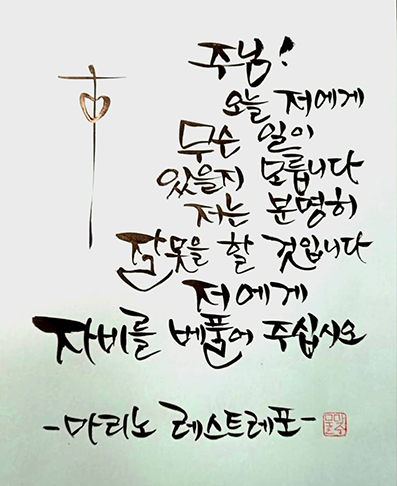 주님!
오늘 저에게
무슨 일이
있을지 모릅니다
저는 분명히
잘못을 할 것입니다
저에게
자비를 베풀어 주십시오
-마티노 레스트레포-